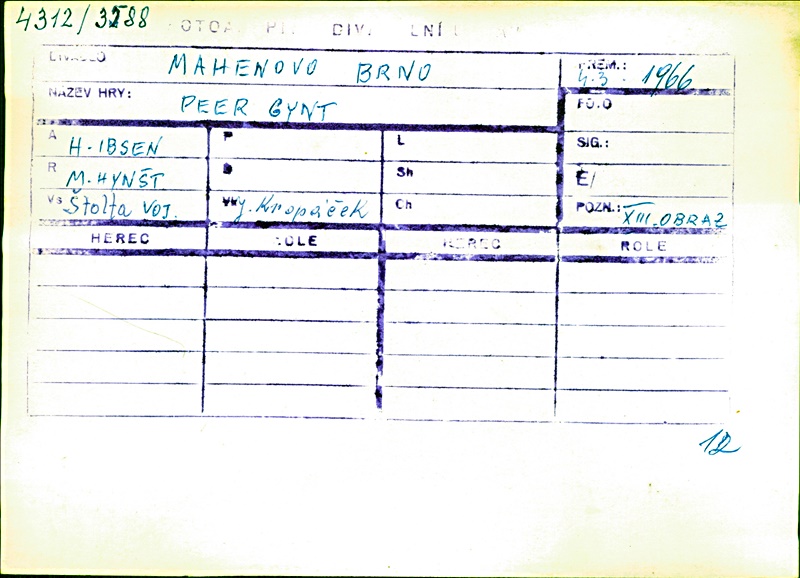 4312/3788
DIVADLO MAHENOVO BRNO PREM.: 4.3. 1966
NÁZEV HRY: PEER GYNT FOTO
A H. IBSEN P L SIG.:
R M. HYNŠT Sh Č/
Vs Štolta VOJ. J. Kropáček Ch POZN.: XIII. OBRAZ
HEREC ROLE HEREC ROLE
12